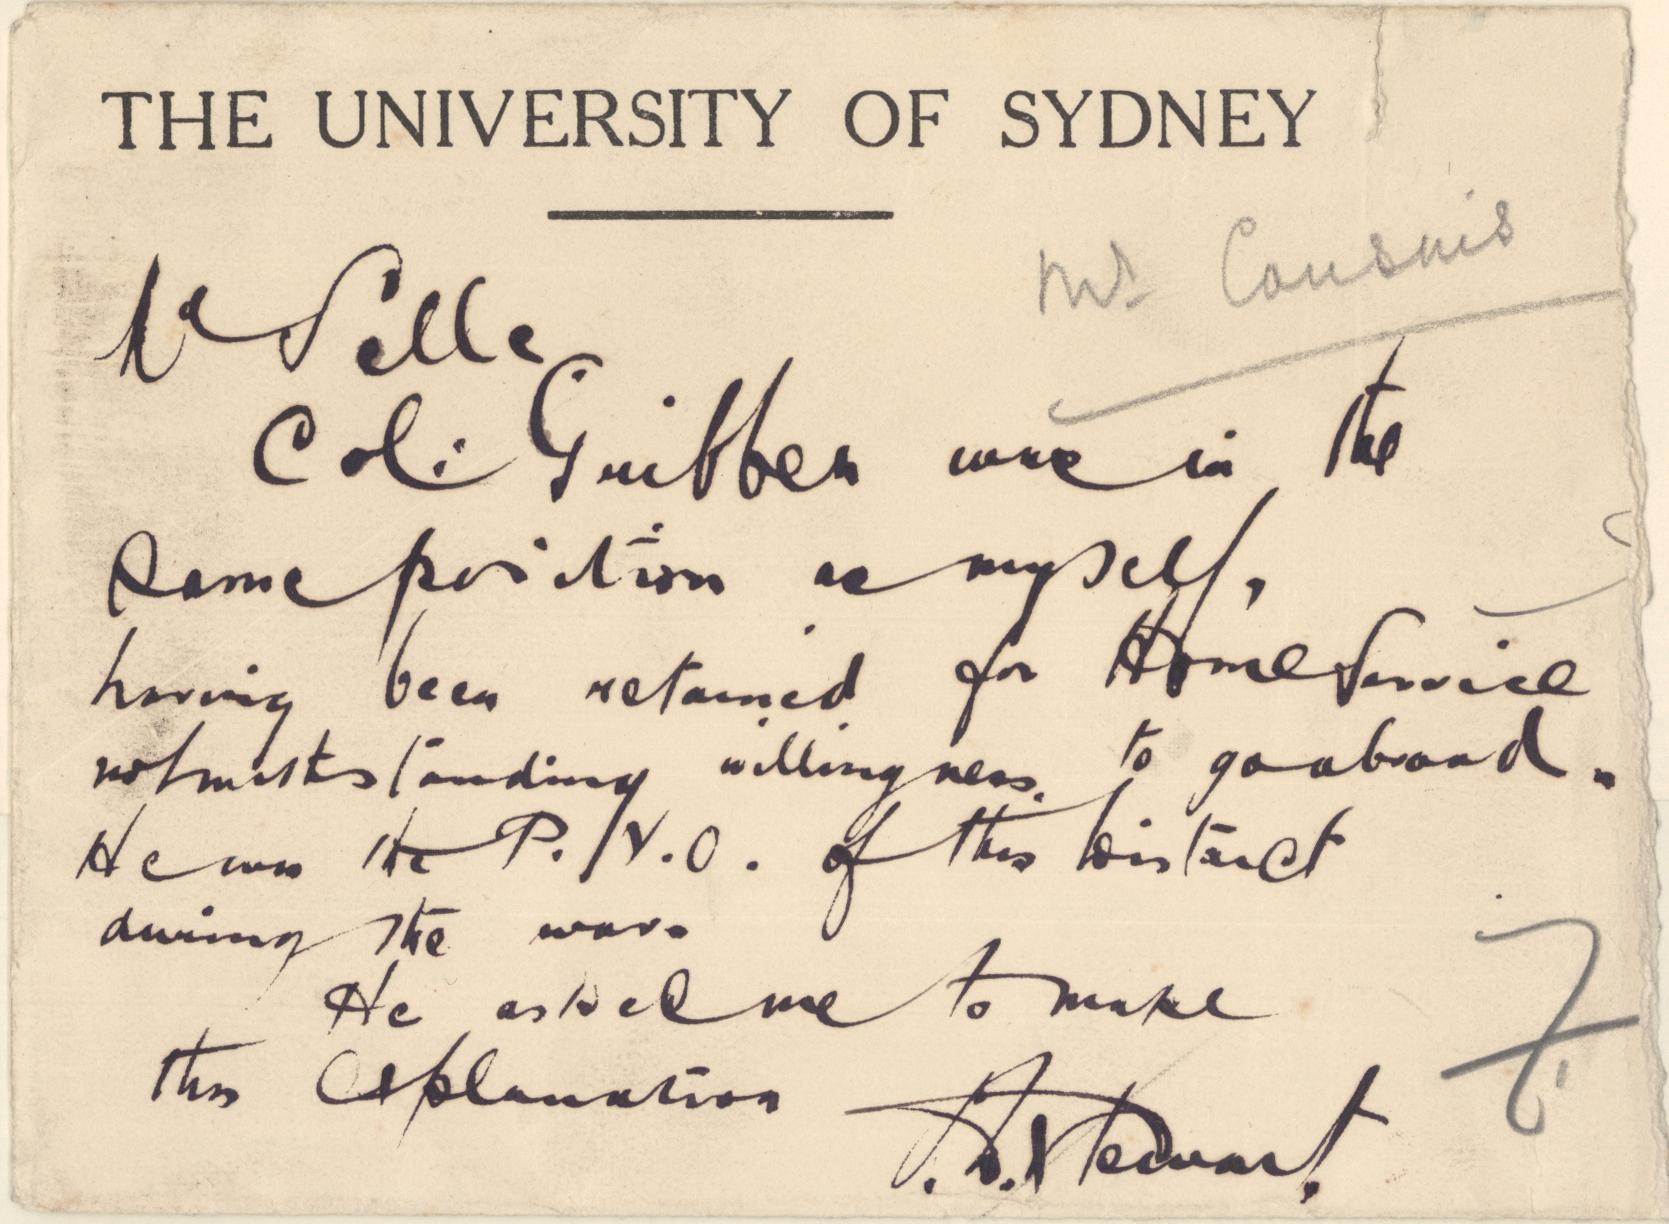 THE UNIVERSITY OF SYDNEY
Mr Cousins
Mr Selle
Col: Gribben was in the
same position as myself,
having been retained for Home Service
notwithstanding willingness to go abroad.
He was the P.M.O. of this District
during the war.
He asked me to make
this explanation
Stewart.